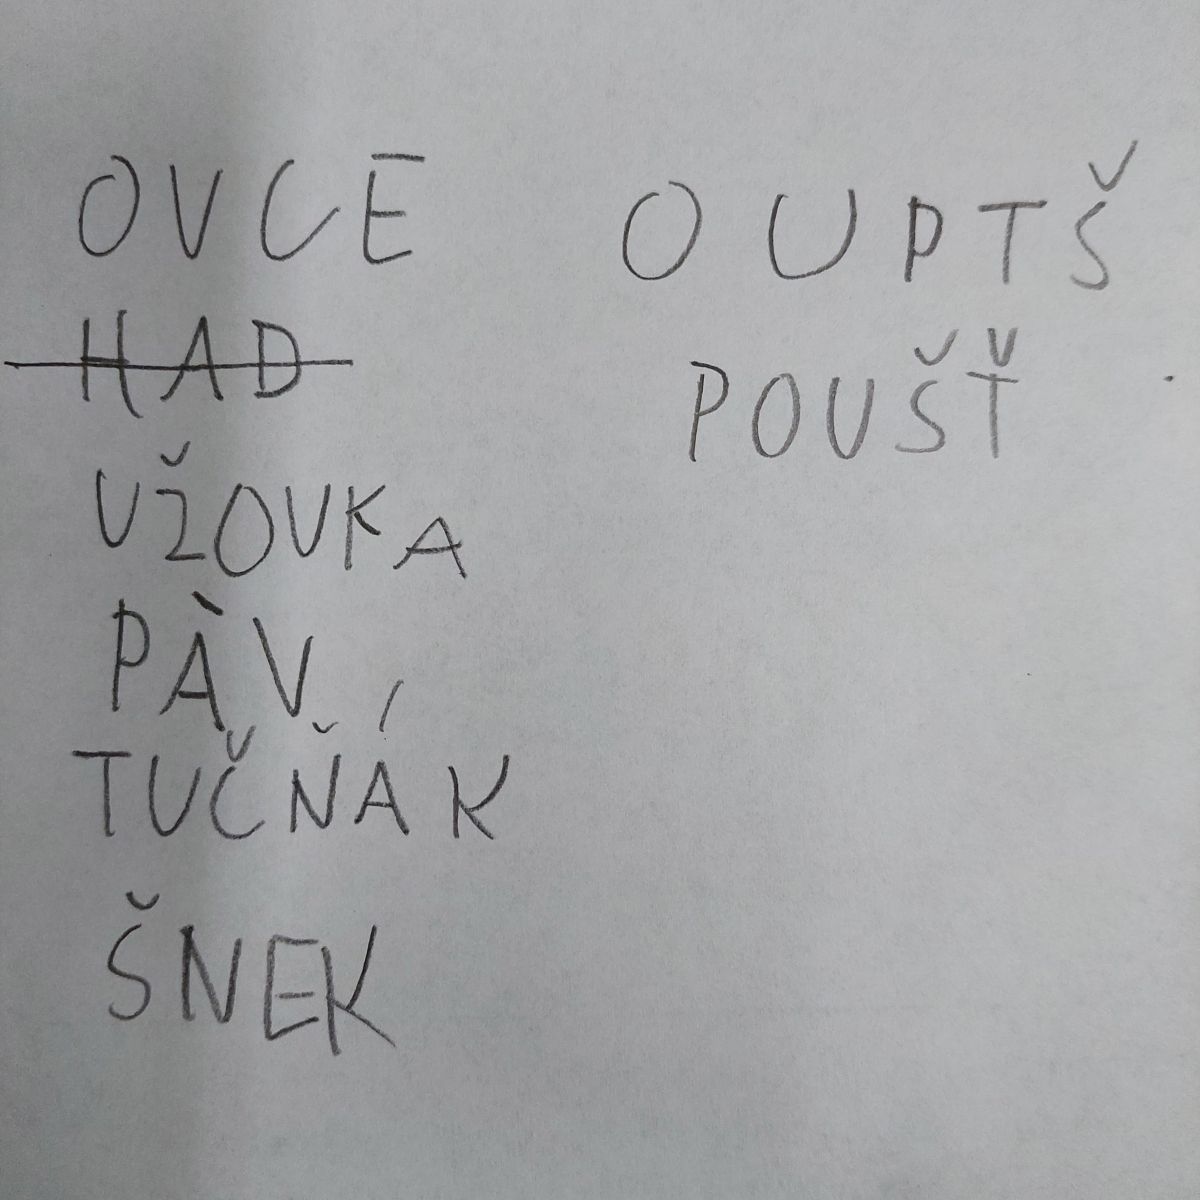 OVCE
HAD
UŽOVKA
PÀV
TUČŇÁK
ŠNEK
OUPTŠ
POUŠŤ